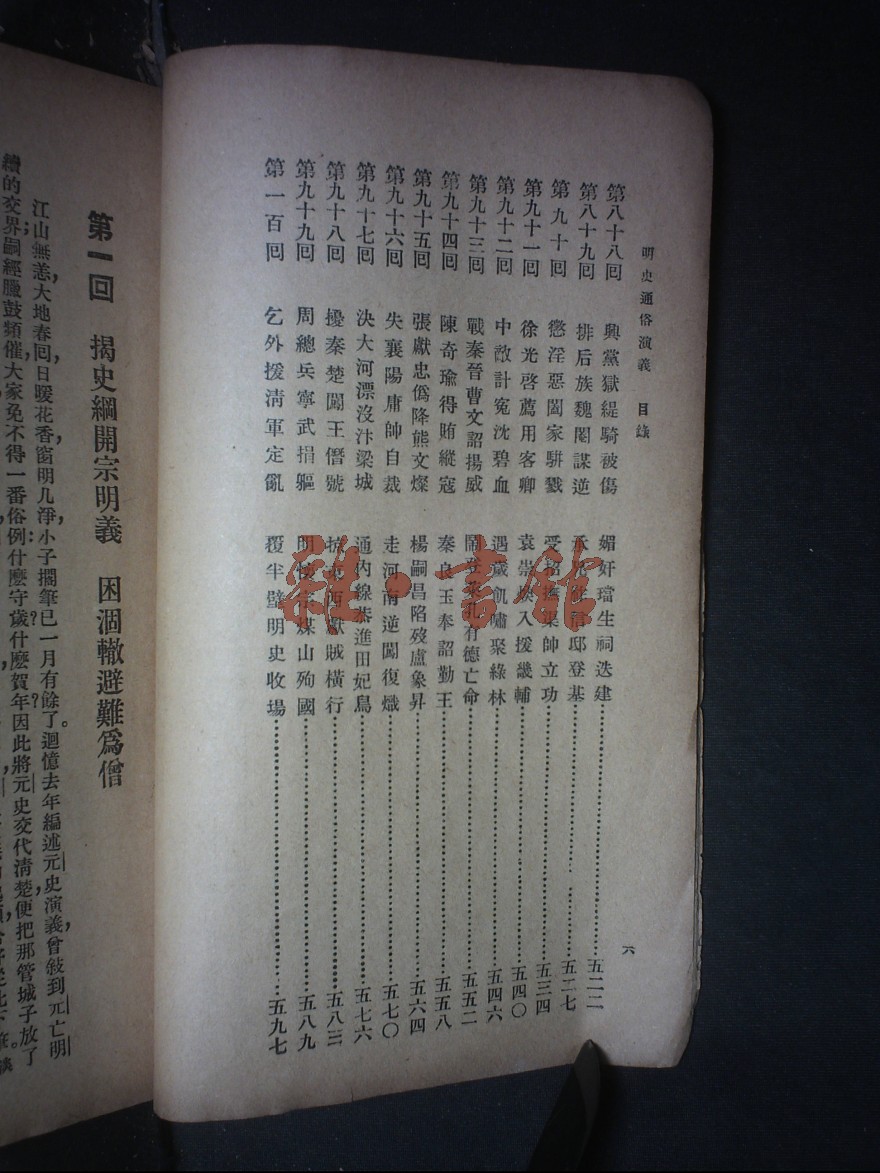 明史通俗演義　目錄
第八十八回　興黨獄緹騎被傷　媚奸璫生祠迭建……五二二
第八十九回　排后族魏閹謀逆　承　信邸登基……五二七
第九十回　懲淫惡闔家駢戮　受招撫渠帥立功……五三四
第九十一回　徐光啓薦用客卿　袁崇煥入援畿輔……五四〇
第九十二回　中敵計冤沈碧血　遇歲飢嘯聚綠林……五四六
第九十三回　戰秦晉曹文詔揚威　鬧登萊孔有德亡命……五五二
第九十四回　陳奇瑜得賄縱寇　秦良玉奉詔勤王……五五八
第九十五回　張獻忠僞降熊文燦　楊嗣昌陷歿盧象昇……五六四
第九十六回　失襄陽庸帥自裁　走河南逆闖復熾……五七〇
第九十七回　決大河漂沒汴梁城　通內線恭進田妃舄……五七六
第九十八回　擾秦楚闖王僭號　西獻賊橫行……五八三
第九十九回　周總兵寧武捐軀　明懷宗煤山殉國……五八九
第一百回　乞外援清軍定亂　覆半壁明史收場……五九七
六
雜·書館
第一回　揭史綱開宗明義　困涸轍避難爲僧
江山無恙，大地春回，日暖花香，窗明几淨，小子擱筆已一月有餘了。迴憶去年編述元史演義，曾敍到元亡明
續的交界；嗣經臘鼓頻催，大家免不得一番俗例，什麼守歲？什麼賀年？因此將元史交代清楚，便把那管城子放了